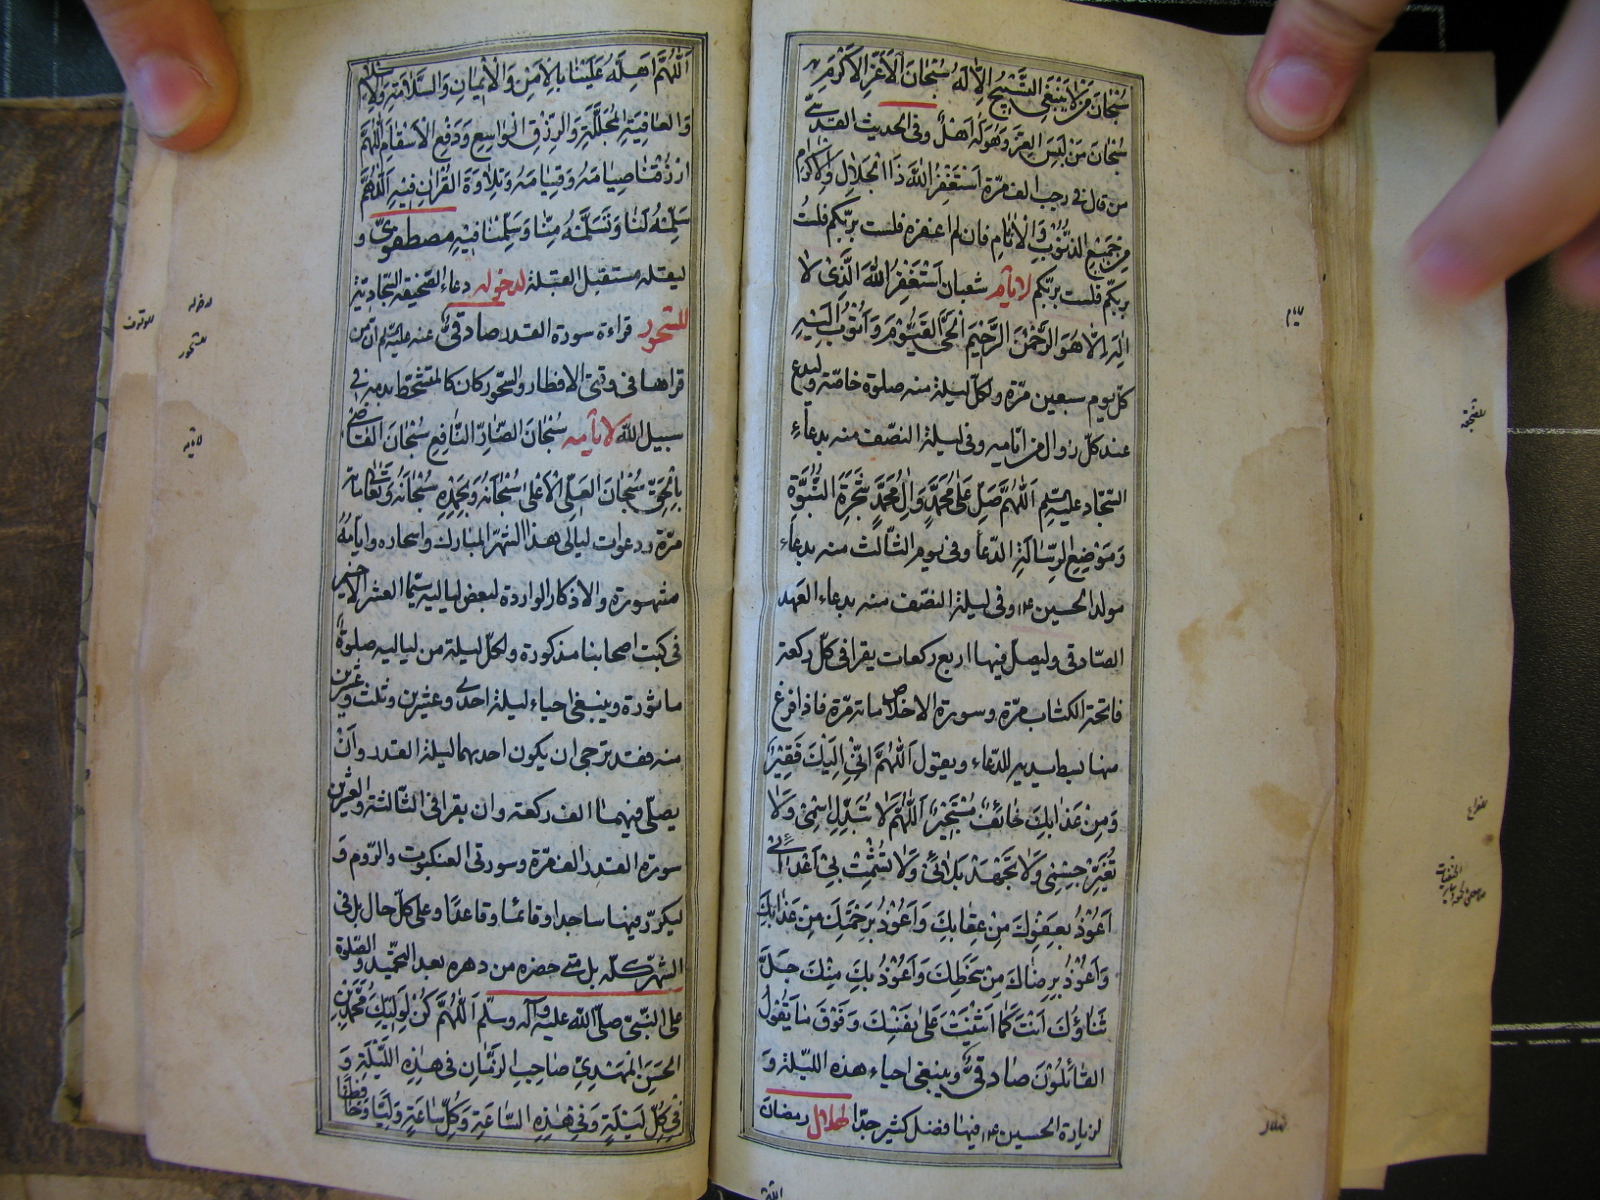 سُبْحَانَ مَنْ لَا يَنْبَغِي التَّسْبِيحُ اِلَّا لَهُ سُبْحَانَ الْاَعَزِّ الْاَكْرَمِ
سُبْحَانَ مَنْ لَبِسَ الْعِزَّ وَهُوَ لَهُ اَهْلٌ وفى الحديث القدسى
من قال فى رجب الف مرّة اَسْتَغْفِرُ اللّٰهَ ذَا الْجَلَالِ وَالْاِكْرَامِ
مِنْ جَمِيعِ الذُّنُوبِ وَالْاٰثَامِ فان لم اغفره فلست بربّكم فلست
بربّكم فلست بربّكم لايّام شعبان اَسْتَغْفِرُ اللّٰهَ الَّذِى لَا
اِلٰهَ اِلَّا هُوَ الرَّحْمٰنُ الرَّحِيمُ الْحَىُّ الْقَيُّومُ وَاَتُوبُ اِلَيْهِ
كلّ يوم سبعين مرّة ولكلّ ليلة منه صلوة خاصّة وليدع
عند كلّ زوال من ايّامه وفى ليلة النصف منه بدعاء
السجّاد عليه السلم اَللّٰهُمَّ صَلِّ عَلٰى مُحَمَّدٍ وَاٰلِ مُحَمَّدٍ شَجَرَةِ النُّبُوَّةِ
وَمَوْضِعِ الرِّسَالَةِ الدّعا وفى يوم الثالث منه بدعاء
مولد الحسين ع وفى ليلة النصف منه بدعاء العهد
الصّادقى وليصلّ فيها اربع ركعات يقرا فى كلّ ركعة
فاتحة الكتاب مرّة وسورة الاخلاص مائة مرّة فاذا فرغ
منها يبسط يديه للدّعاء ويقول اَللّٰهُمَّ اِنِّى اِلَيْكَ فَقِيرٌ
وَمِنْ عَذَابِكَ خَائِفٌ مُسْتَجِيرٌ اَللّٰهُمَّ لَا تُبَدِّلْ اِسْمِى وَلَا
تُغَيِّرْ جِسْمِى وَلَا تُجْهِدْ بَلَائِى وَلَا تُشْمِتْ بِى اَعْدَائِى
اَعُوذُ بِعَفْوِكَ مِنْ عِقَابِكَ وَاَعُوذُ بِرَحْمَتِكَ مِنْ عَذَابِكَ
وَاَعُوذُ بِرِضَاكَ مِنْ سَخَطِكَ وَاَعُوذُ بِكَ مِنْكَ جَلَّ
ثَنَاؤُكَ اَنْتَ كَمَا اَثْنَيْتَ عَلٰى نَفْسِكَ وَفَوْقَ مَا يَقُولُ
الْقَائِلُونَ صادقى وينبغى احياء هذه الليلة و
لزيارة الحسين ع فيها فضل كثير جدّا لهلال رمضان
اَللّٰهُمَّ اَهِلَّهُ عَلَيْنَا بِالْاَمْنِ وَالْاِيمَانِ وَالسَّلَامَةِ وَالْاِسْلَامِ
وَالْعَافِيَةِ الْمُجَلَّلَةِ وَالرِّزْقِ الْوَاسِعِ وَدَفْعِ الْاَسْقَامِ اَللّٰهُمَّ
ارْزُقْنَا صِيَامَهُ وَقِيَامَهُ وَتِلَاوَةَ الْقُرْاٰنِ فِيهِ اَللّٰهُمَّ
سَلِّمْهُ لَنَا وَتَسَلَّمْهُ مِنَّا وَسَلِّمْنَا فِيهِ مصطفوى و
ليقله مستقبل القبلة لدخوله دعاء الصّحيفة السّجّاديّة
للسّحور قراءة سورة القدر صادقى عنه عليه السلم انّ من
قراها فى وقتى الافطار والسّحور كان كالمتشحّط بدمه فى
سبيل اللّٰه لايّامه سُبْحَانَ الضَّارِّ النَّافِعِ سُبْحَانَ الْقَاضِى
بِالْحَقِّ سُبْحَانَ الْعَلِىِّ الْاَعْلٰى سُبْحَانَهُ وَبِحَمْدِهِ سُبْحَانَهُ وَتَعَالٰى مائة
مرّة ودعوات ليالى هذا الشهر المبارك واسحاره وايّامه
مشهورة والاذكار الواردة لبعض لياليه سيّما العشر الاخير
فى كتب اصحابنا مذكورة ولكلّ ليلة من لياليه صلوة
ماثورة وينبغى احياء ليلة احدى وعشرين وثلث وعشرين
منه فقد ترجى ان يكون احديهما ليلة القدر وان
يصلّى فيهما الف ركعة وان يقرا فى الثّالثة والعشرين
سورة القدر الف مرّة وسورتى العنكبوت والرّوم و
ليكرّر فيها ساجدا وقائما وقاعدا وعلى كلّ حال بل فى
الشهر كلّه بل متى حضره من دهره بعد التحميد والصّلوة
على النّبىّ صلّى اللّٰه عليه وآله وسلّم اَللّٰهُمَّ كُنْ لِوَلِيِّكَ مُحَمَّدِ بْنِ
الْحَسَنِ الْمَهْدِىِّ صَاحِبِ الزَّمَانِ فِى هٰذِهِ اللَّيْلَةِ وَ
فِى كُلِّ لَيْلَةٍ وَفِى هٰذِهِ السَّاعَةِ وَكُلِّ سَاعَةٍ وَلِيًّا وَحَافِظًا